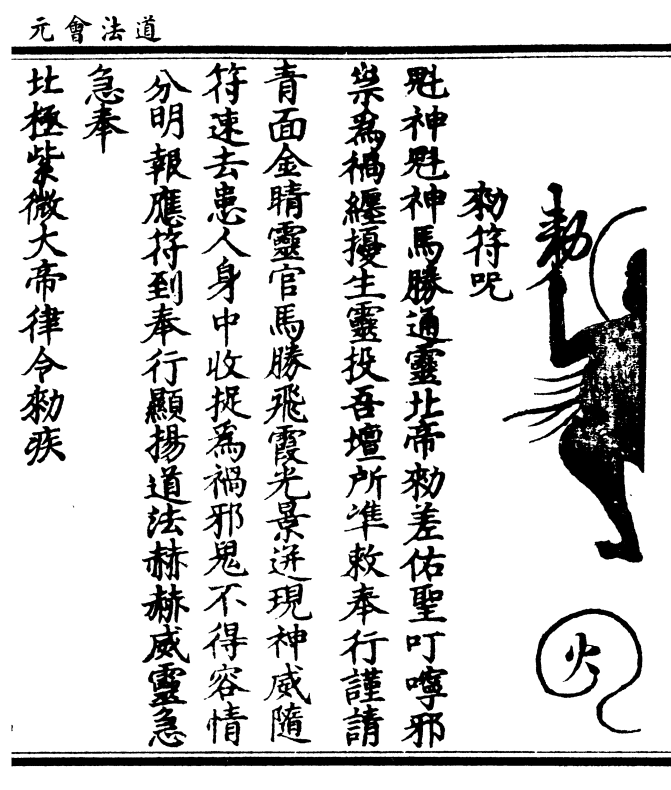 元會法道
勑
火
勑符呪
魁神魁神馬勝通靈北帝勑差佑聖叮嚀邪
祟為禍纏擾生靈投吾壇所準敕奉行謹請
青面金睛靈官馬勝飛霞光景迸現神威隨
符速去患人身中收捉為禍邪鬼不得容情
分明報應符到奉行顯揚道法赫赫威靈急
急奉
北極紫微大帝律令勑疾